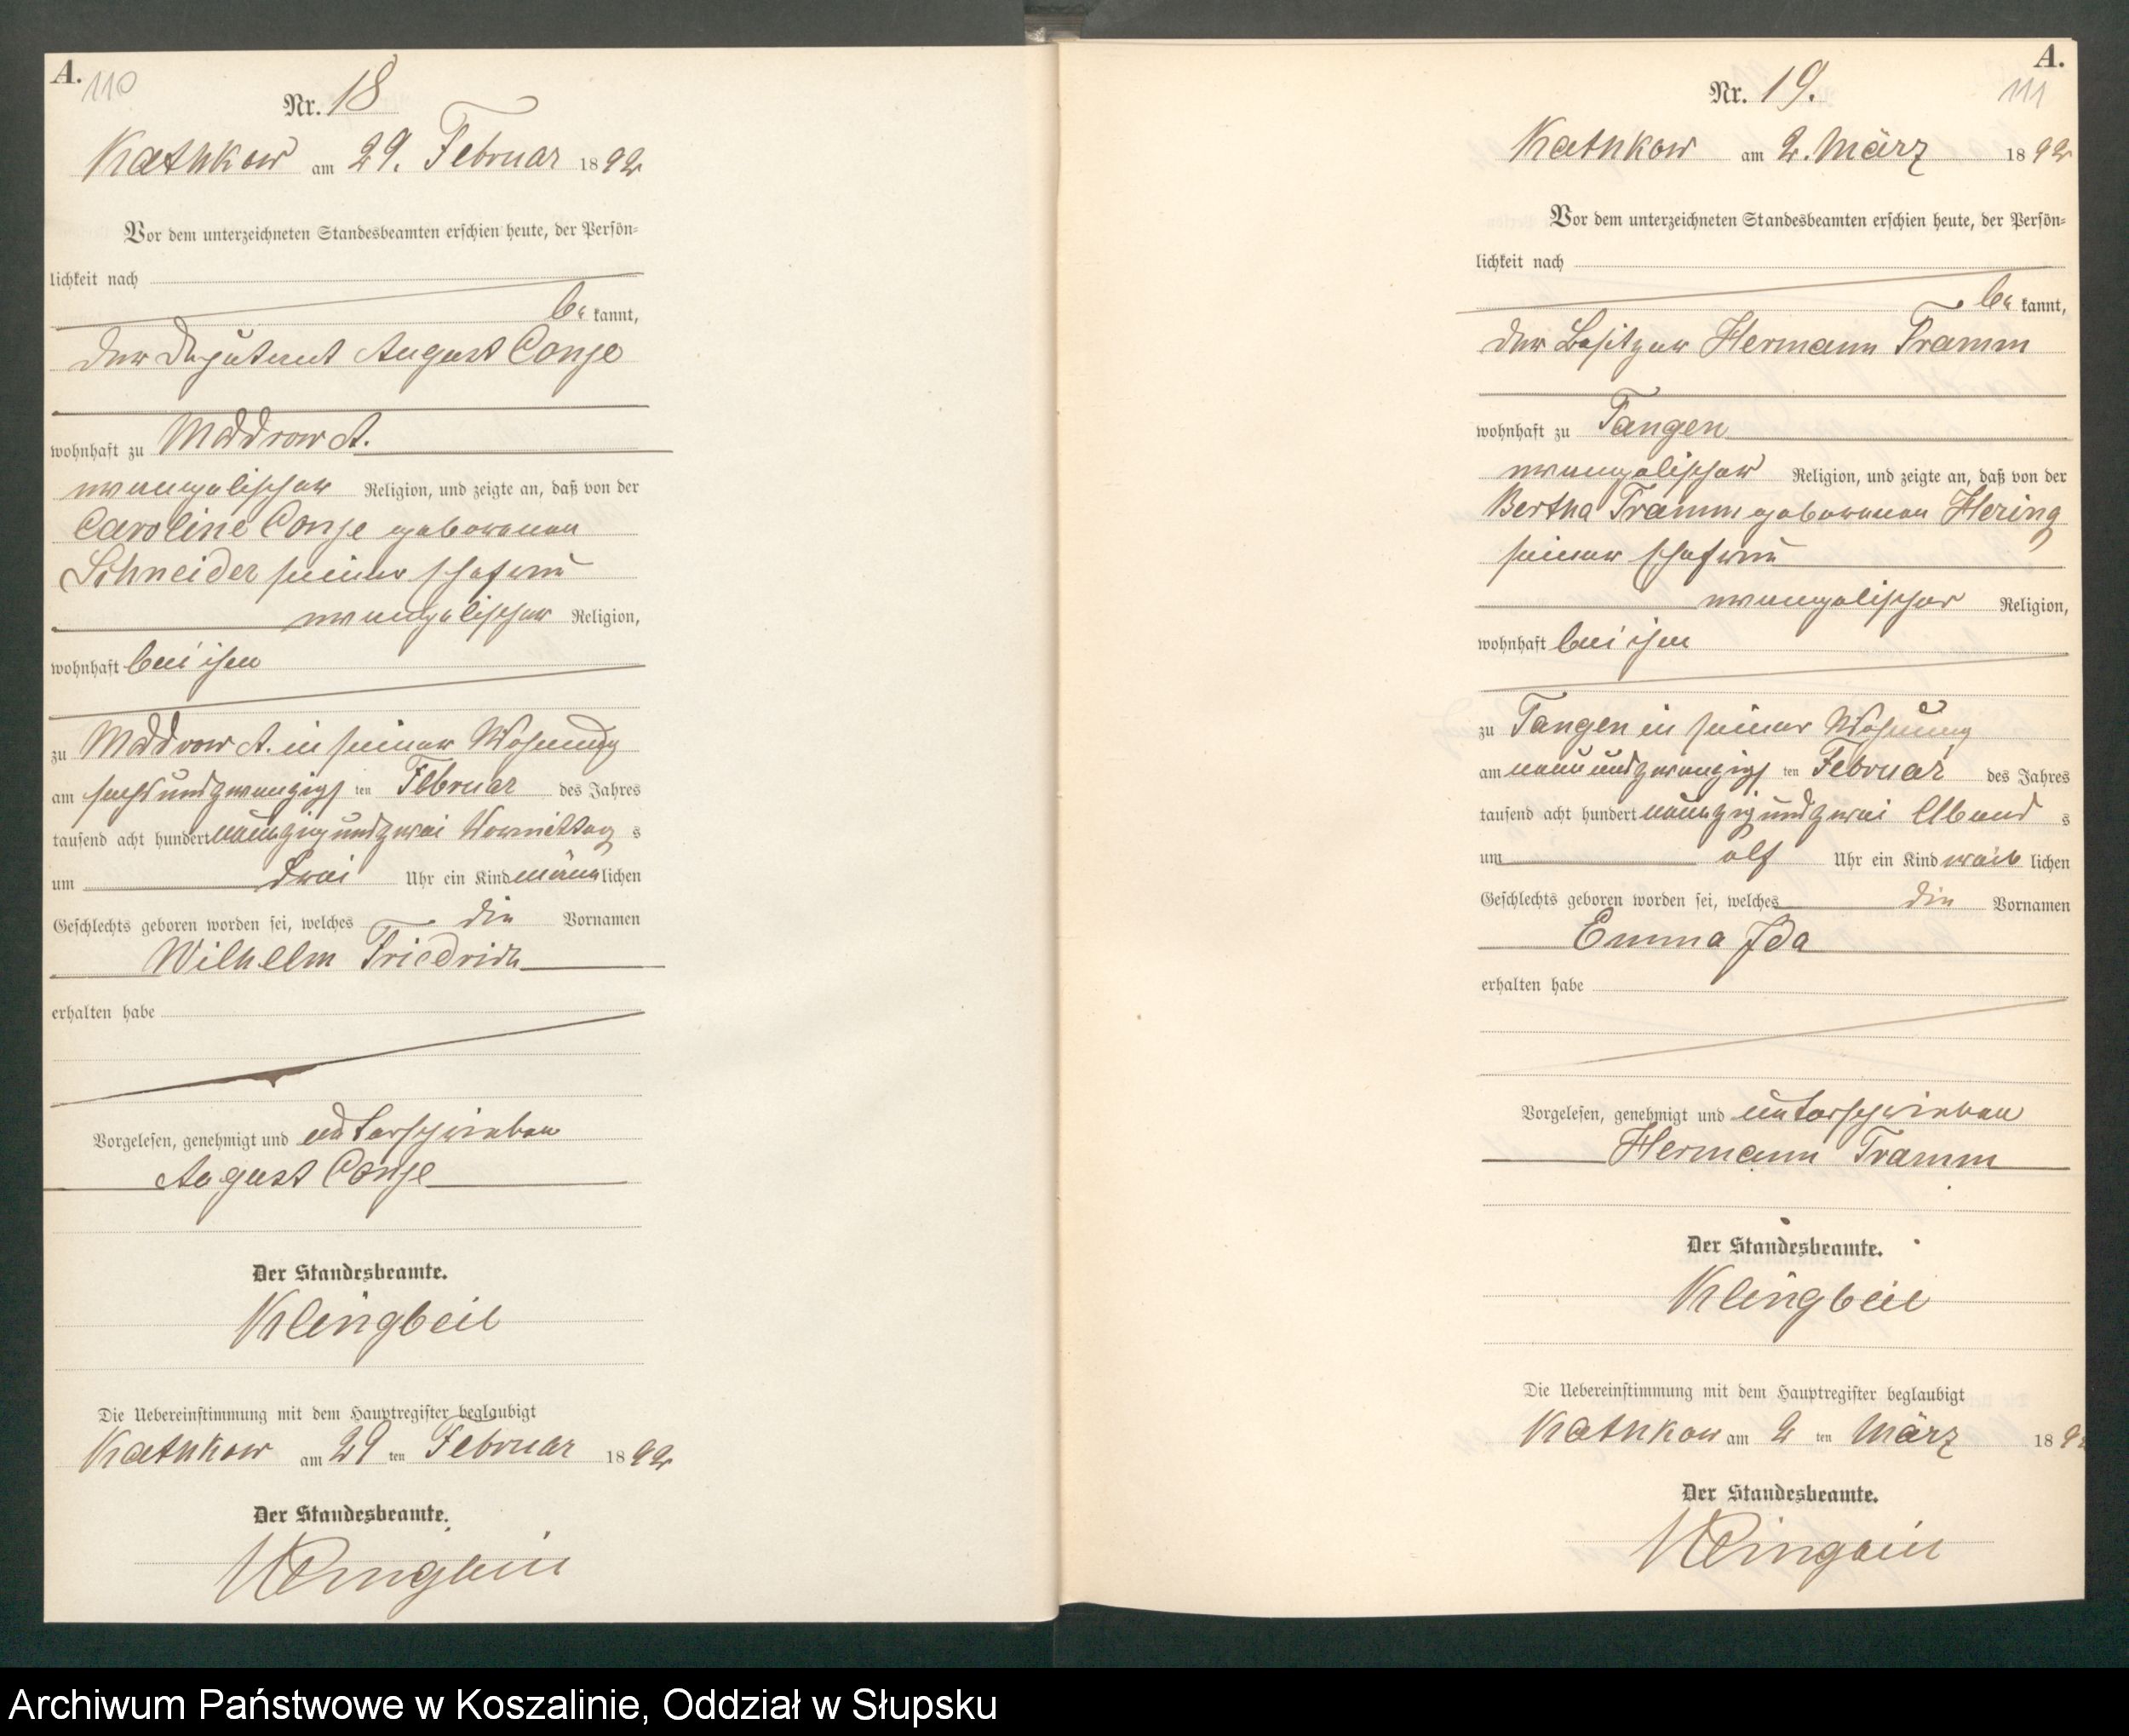 A.
110
Nr. 18
Kathkow am 29. Februar 1892
Vor dem unterzeichneten Standesbeamten erschien heute, der Persön-
lichkeit nach
be kannt,
der Deputant August Conje
wohnhaft zu Moddrow A.
evangelischer Religion, und zeigte an, daß von der
Caroline Conje geborenen
Schneider seiner Ehefrau
evangelischer Religion,
wohnhaft bei ihm
zu Moddrow A. in seiner Wohnung
am sechsundzwanzigs ten Februar des Jahres
tausend acht hundert neunzig und zwei Vormittag s
um drei Uhr ein Kind männ lichen
Geschlechts geboren worden sei, welches die Vornamen
Wilhelm Friedrich
erhalten habe
Vorgelesen, genehmigt und unterschrieben
August Conje
Der Standesbeamte.
Klingbeil
Die Uebereinstimmung mit dem Hauptregister beglaubigt
Kathkow am 29 ten Februar 1892
Der Standesbeamte.
Klingbeil
A.
111
Nr. 19.
Kathkow am 2. März 1892
Vor dem unterzeichneten Standesbeamten erschien heute, der Persön-
lichkeit nach
be kannt,
der Besitzer Hermann Tramm
wohnhaft zu Tangen
evangelischer Religion, und zeigte an, daß von der
Bertha Tramm geborenen Hering
seiner Ehefrau
evangelischer Religion,
wohnhaft bei ihm
zu Tangen in seiner Wohnung
am neunundzwanzigs ten Februar des Jahres
tausend acht hundert neunzig und zwei Abend s
um elf Uhr ein Kind weib lichen
Geschlechts geboren worden sei, welches die Vornamen
Emma Ida
erhalten habe
Vorgelesen, genehmigt und unterschrieben
Hermann Tramm
Der Standesbeamte.
Klingbeil
Die Uebereinstimmung mit dem Hauptregister beglaubigt
Kathkow am 2 ten März 1892
Der Standesbeamte.
Klingbeil
Archiwum Państwowe w Koszalinie, Oddział w Słupsku